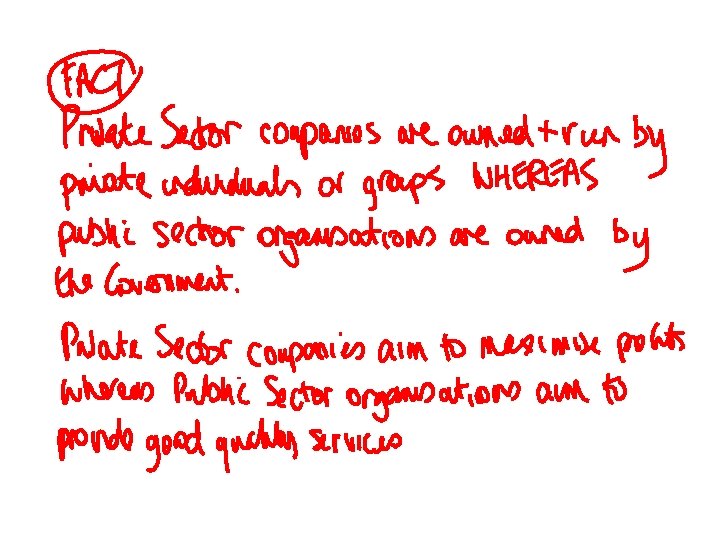 FACT
Private Sector companies are owned + run by
private individuals or groups WHEREAS
public sector organisations are owned by
the Government.
Private Sector companies aim to maximise profits
whereas Public Sector organisations aim to
provide good quality services